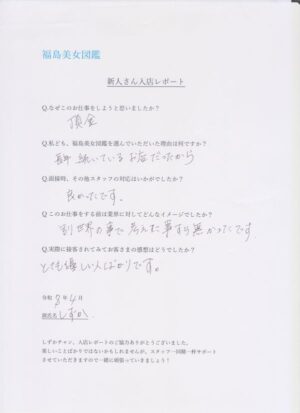 福島美女図鑑
新人さん入店レポート
Q.なぜこのお仕事をしようと思いましたか?
Q.私ども、福島美女図鑑を選んでいただいた理由は何ですか?
長年続いているお店だったから
Q.面接時、その他スタッフの対応はいかがでしたか?
良かったです。
Q.このお仕事をする前は業界に対してどんなイメージでしたか?
別世界の事で考えた事すら無かったです
Q.実際に接客されてみてお客さまの感想はどうでしたか?
とても優しい人ばかりです。
令和 8 年 4 月
源氏名 しずか
しずかチャン、入店レポートのご協力ありがとうございました。
楽しいことばかりではないかもしれませんが、スタッフ一同精一杯サポート
させていただきますので一緒に頑張っていきましょう!